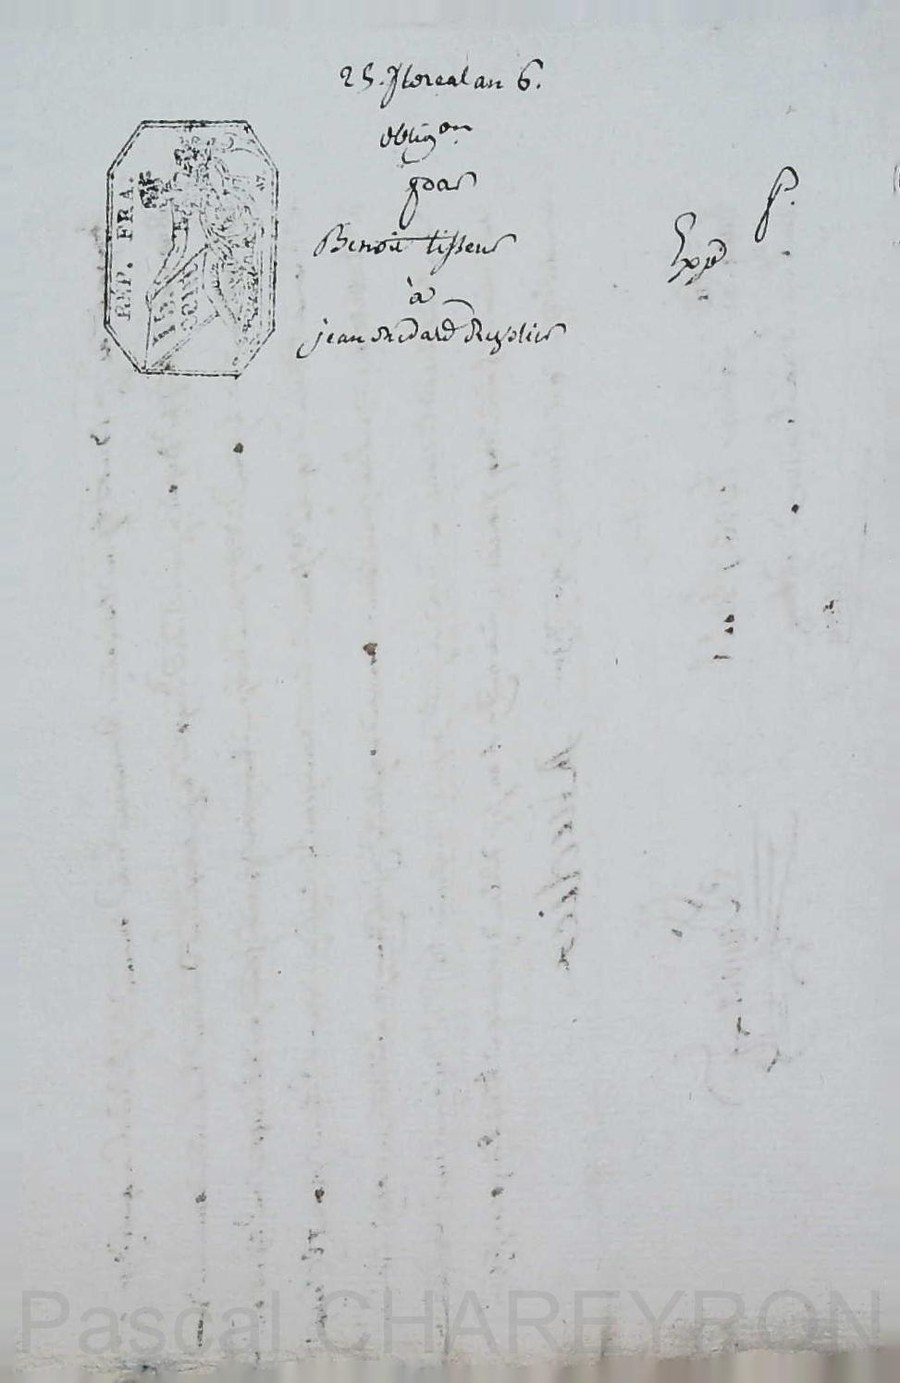 25. floreal an 6.
obligon
par
Benoit tisseur
à
jean
P.
Expé
REP. FRA.
Pascal CHAREYRON